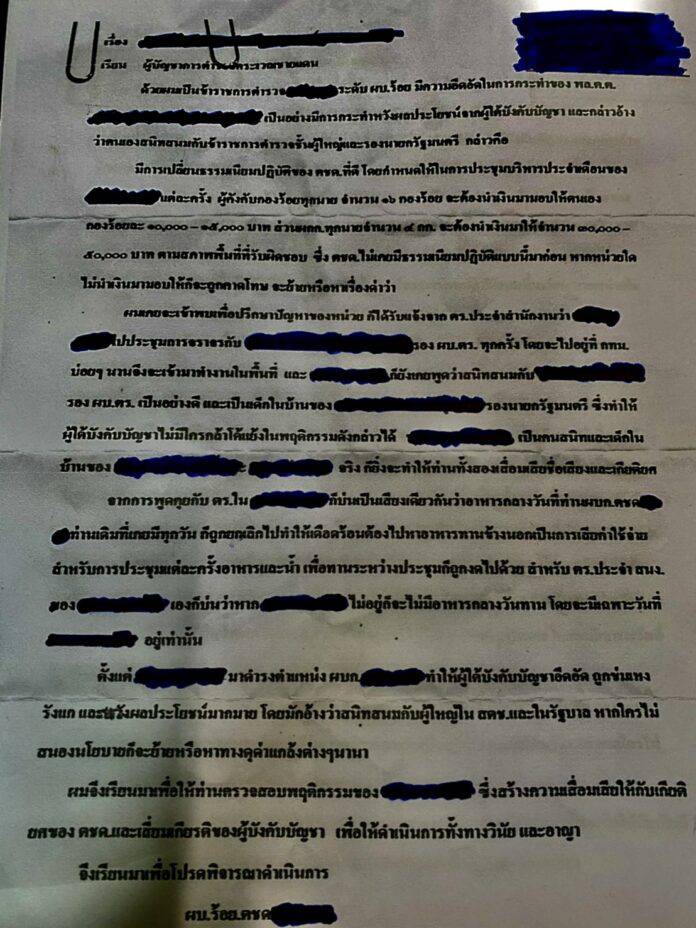 เรื่อง
เรียน ผู้บัญชาการตำรวจตระเวนชายแดน
ด้วยผมเป็นข้าราชการตำรวจ ระดับ ผบ.ร้อย มีความอึดอัดในการกระทำของ พล.ต.ต.
เป็นอย่างมีการกระทำหวังผลประโยชน์จากผู้ใต้บังคับบัญชา และกล่าวอ้าง
ว่าตนเองสนิทสนมกับข้าราชการตำรวจชั้นผู้ใหญ่และรองนายกรัฐมนตรี กล่าวคือ
มีการเปลี่ยนธรรมเนียมปฏิบัติของ ตชด.ที่ดี โดยกำหนดให้ในการประชุมบริหารประจำเดือนของ
แต่ละครั้ง ผู้กำกับกองร้อยทุกนาย จำนวน ๑๖ กองร้อย จะต้องนำเงินมามอบให้ตนเอง
กองร้อยละ ๑๐,๐๐๐ – ๑๕,๐๐๐ บาท ส่วนผกก.ทุกนายจำนวน ๔ กก. จะต้องนำเงินมาให้จำนวน ๓๐,๐๐๐ –
๕๐,๐๐๐ บาท ตามสภาพพื้นที่ที่รับผิดชอบ ซึ่ง ตชด.ไม่เคยมีธรรมเนียมปฏิบัติแบบนี้มาก่อน หากหน่วยใด
ไม่นำเงินมามอบให้ก็จะถูกคาดโทษ จะย้ายหรือหาเรื่องด่าว่า
ผมเคยจะเข้าพบเพื่อปรึกษาปัญหาของหน่วย ก็ได้รับแจ้งจาก ตร.ประจำสำนักงานว่า
ไปประชุมการจราจรกับ รอง ผบ.ตร. ทุกครั้ง โดยจะไปอยู่ที่ กทม.
บ่อยๆ นานจึงจะเข้ามาทำงานในพื้นที่ และ ก็ยังเคยพูดว่าสนิทสนมกับ
รอง ผบ.ตร. เป็นอย่างดี และเป็นเด็กในบ้านของ รองนายกรัฐมนตรี ซึ่งทำให้
ผู้ใต้บังคับบัญชาไม่มีใครกล้าโต้แย้งในพฤติกรรมดังกล่าวได้ เป็นคนสนิทและเด็กใน
บ้านของ จริง ก็ยิ่งจะทำให้ท่านทั้งสองเสื่อมเสียชื่อเสียงและเกียรติยศ
จากการพูดคุยกับ ตร.ใน ก็บ่นเป็นเสียงเดียวกันว่าอาหารกลางวันที่ท่านผบก.ตชด
ท่านเดิมที่เคยมีทุกวัน ก็ถูกยกเลิกไปทำให้เดือดร้อนต้องไปหาอาหารทานข้างนอกเป็นการเสียค่าใช้จ่าย
สำหรับการประชุมแต่ละครั้งอาหารและน้ำ เพื่อทานระหว่างประชุมก็ถูกงดไปด้วย สำหรับ ตร.ประจำ สนง.
ของ เองก็บ่นว่าหาก ไม่อยู่ก็จะไม่มีอาหารกลางวันทาน โดยจะมีเฉพาะวันที่
อยู่เท่านั้น
ตั้งแต่ มาดำรงตำแหน่ง ผบก. ทำให้ผู้ใต้บังคับบัญชาอึดอัด ถูกข่มเหง
รังแก และหวังผลประโยชน์มากมาย โดยมักอ้างว่าสนิทสนมกับผู้ใหญ่ใน สตช.และในรัฐบาล หากใครไม่
สนองนโยบายก็จะย้ายหรือหาทางดุด่าแกล้งต่างๆนานา
ผมจึงเรียนมาเพื่อให้ท่านตรวจสอบพฤติกรรมของ ซึ่งสร้างความเสื่อมเสียให้กับเกียติ
ยศของ ตชด.และเสื่อมเกียรติของผู้บังคับบัญชา เพื่อให้ดำเนินการทั้งทางวินัย และอาญา
จึงเรียนมาเพื่อโปรดพิจารณาดำเนินการ
ผบ.ร้อย.ตชด